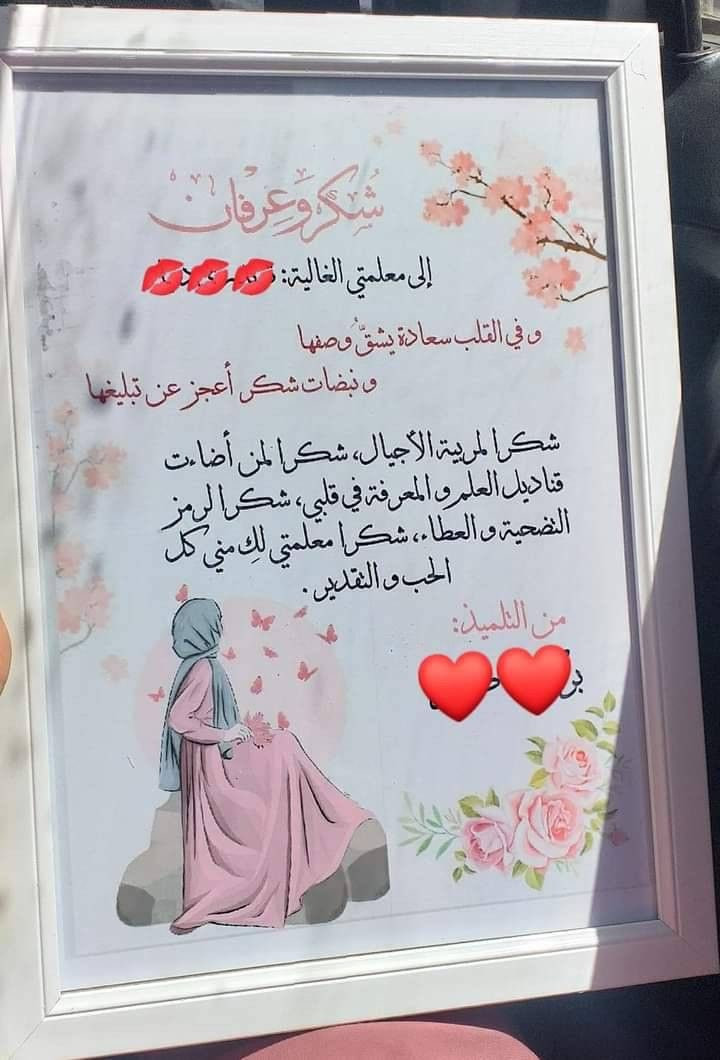 شُكر وَعِرفان
إلى معلمتي الغالية:
و في القلب سعادة يشقُّ وصفها
و نبضات شكر أعجز عن تبليغها
شكرا لمربية الأجيال، شكرا لمن أضاءت
قناديل العلم و المعرفة في قلبي، شكرا لرمز
التضحية و العطاء، شكرا معلمتي لكِ مني كل
الحب و التقدير.
من التلميذ: